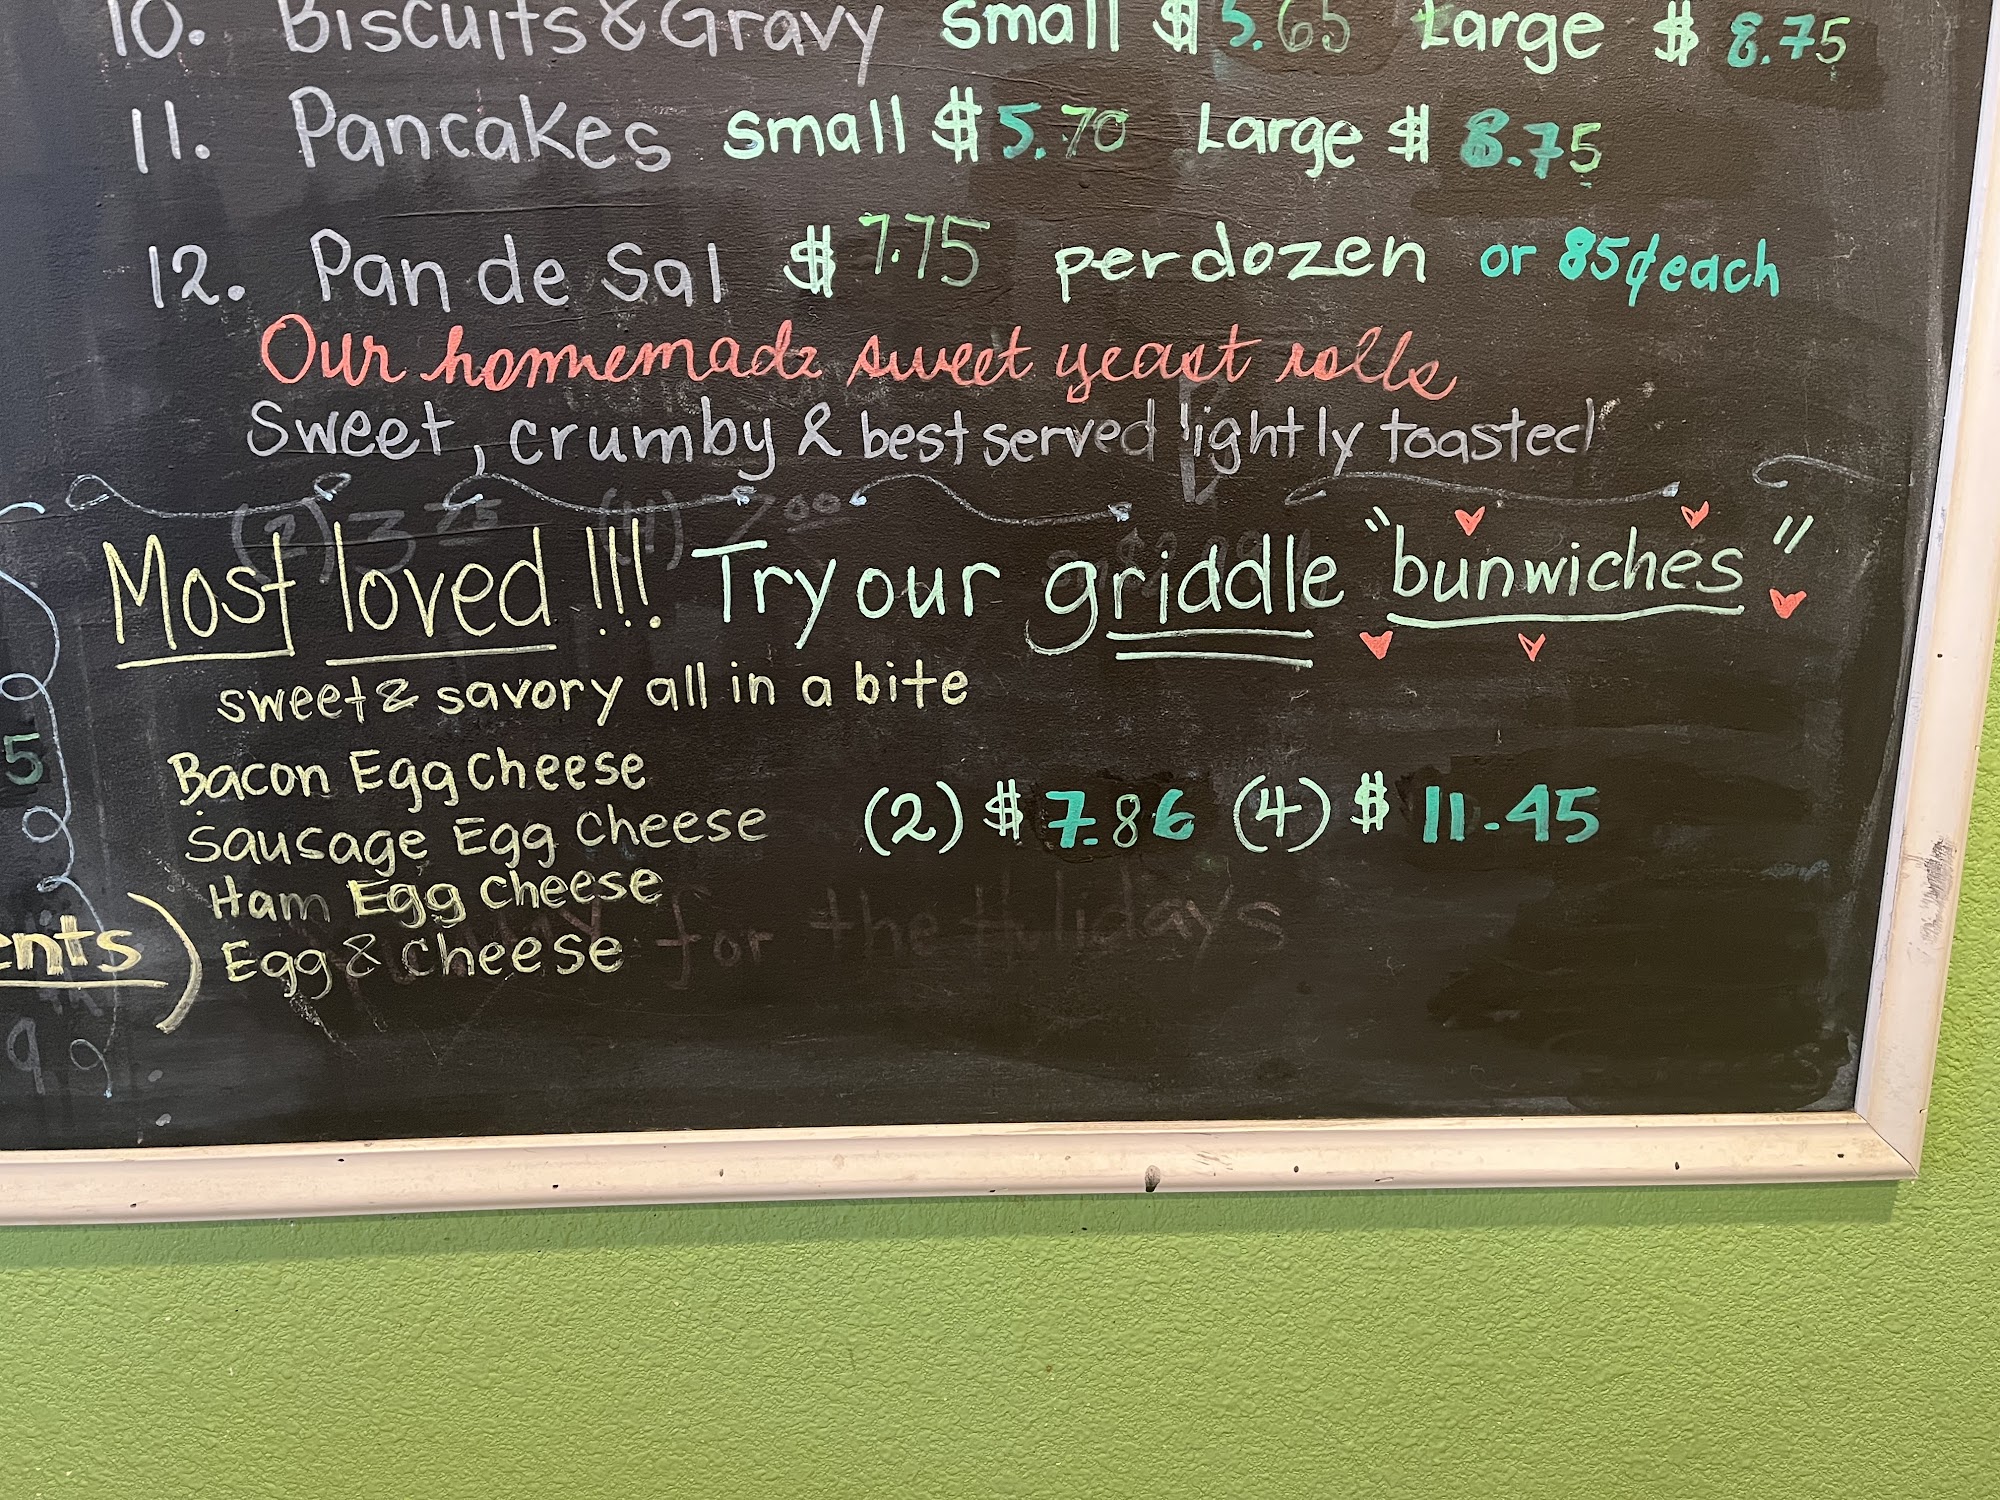 10. Biscuits & Gravy Small $5.65 Large $8.75
11. Pancakes Small $5.70 Large $8.75
12. Pan de Sal $7.75 per dozen or 85¢ each
Our homemade sweet yeast rolls
Sweet, crumby & best served lightly toasted
Most loved!!! Try our griddle "bunwiches"
sweet & savory all in a bite
Bacon Egg Cheese
Sausage Egg Cheese (2) $7.86 (4) $11.45
Ham Egg Cheese
Egg & Cheese
for the Holidays
5
ents)